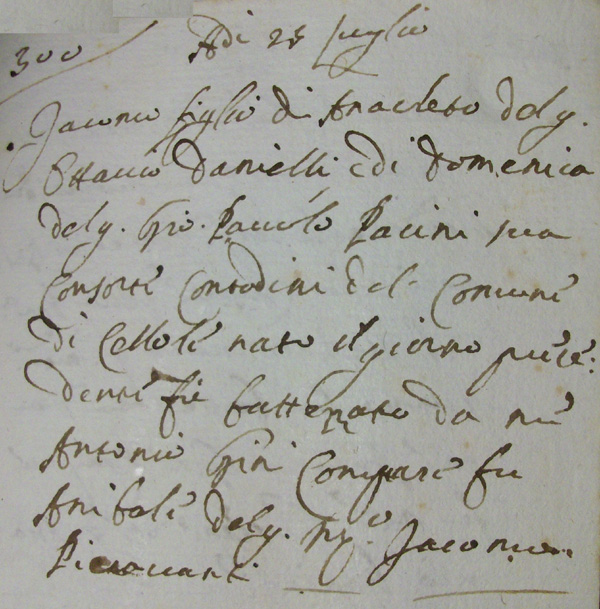 300 Adi 25 luglio
Jacomo figlio di Anacleto del q.
Ottavio Danielli e di Domenica
del q. Gio. Pauolo Pacini sua
Consorte Contadini del Comune
di Cellole nato il giorno prece:
dente fu battezzato da me
Antonio Gini Compare fu
Anibale del q. Jacomo